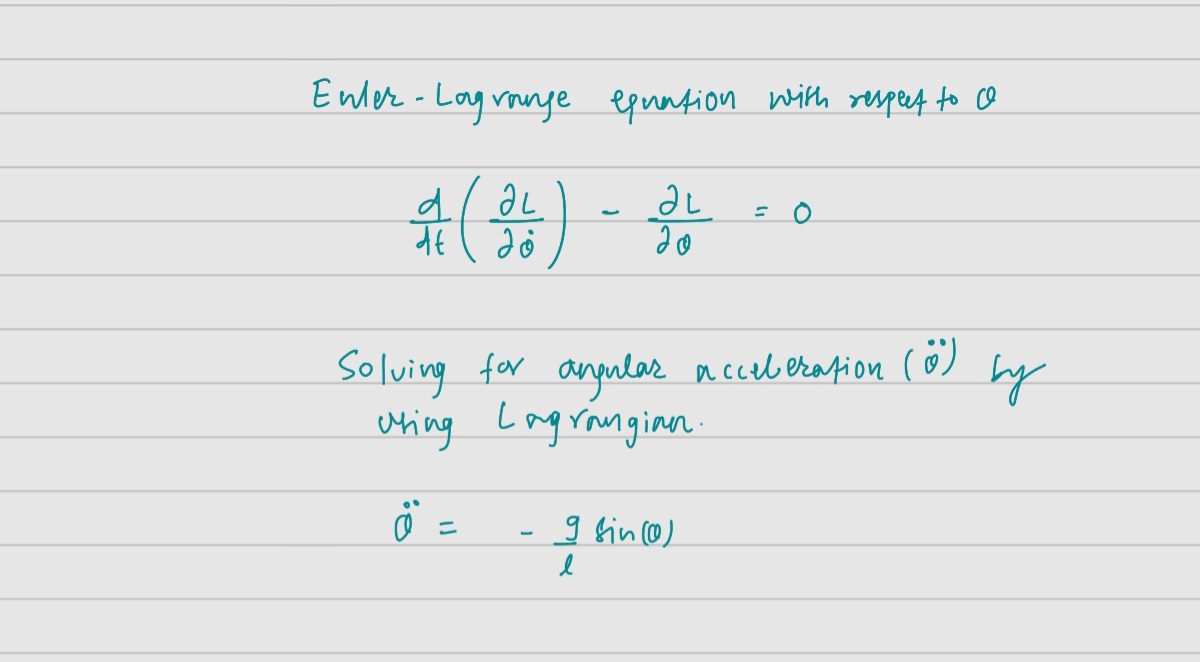 Euler-Lagrange equation with respect to θ
d/dt (∂L/∂θ̇) - ∂L/∂θ = 0
Solving for angular acceleration (θ̈) by
using Lagrangian.
θ̈ = - g/l sin(θ)